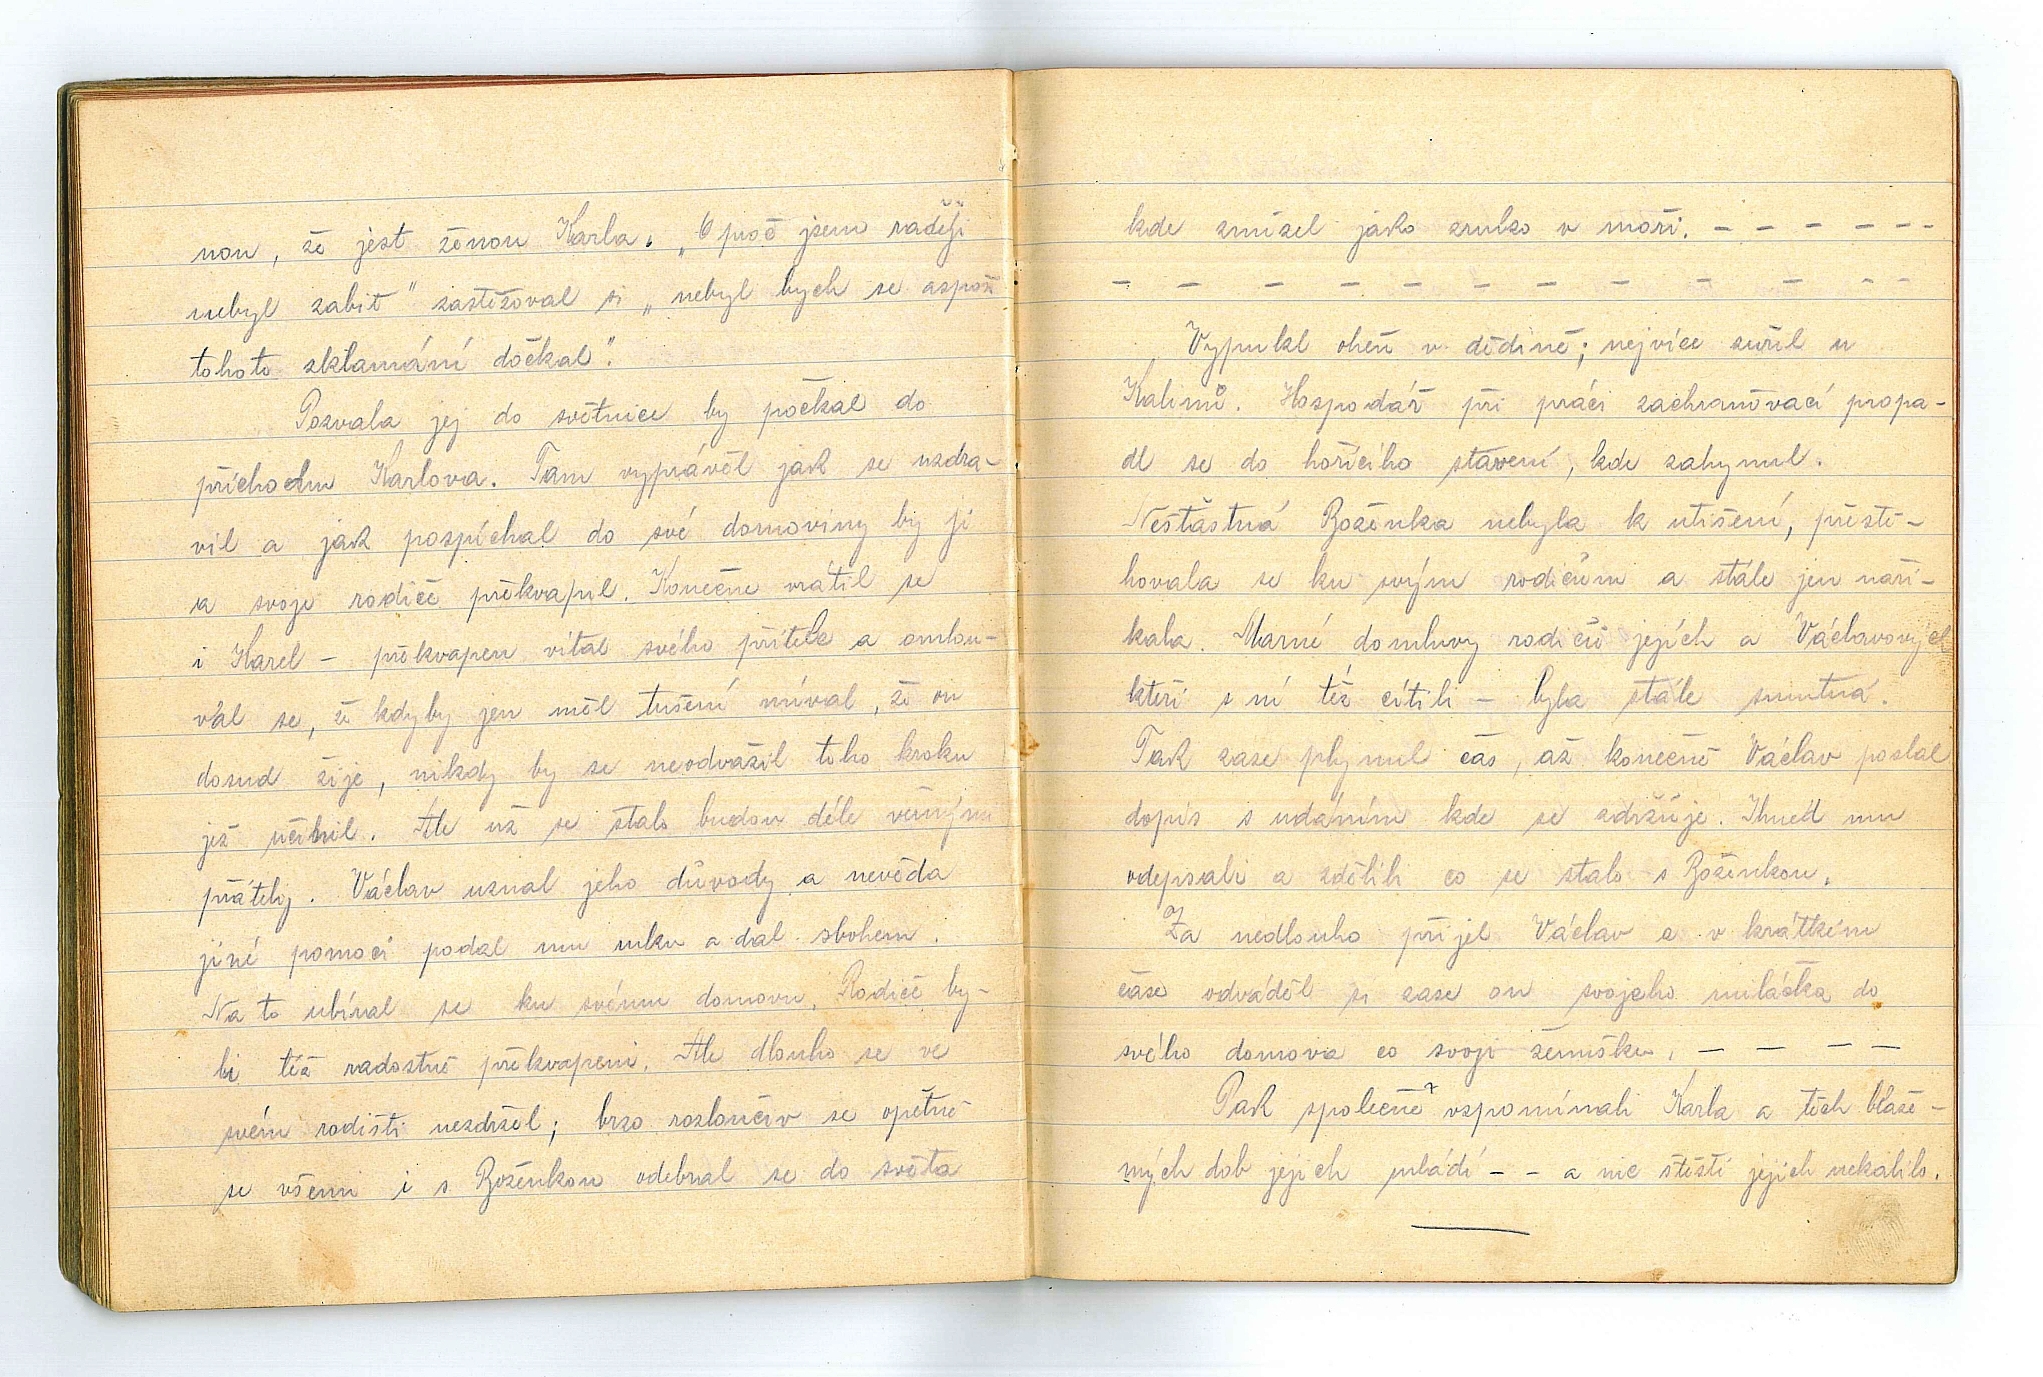 nou, že jest ženou Karla. „O proč jsem raději
nebyl zabit" zastěžoval si „nebyl bych se aspoň
tohoto zklamání dočkal".
Pozvala jej do světnice by počkal do
příchodu Karlova. Tam vyprávěl jak se uzdra-
vil a jak pospíchal do své domoviny by ji
a svoje rodiče překvapil. Konečne vrátil se
i Karel – překvapen vítal svého přítele a omlou-
val se, že kdyby jen měl tušení míval, že on
dosud žije, nikdy by se neodvážil toho kroku
jež učinil. Ale už se stalo budou déle věrnými
přátely. Václav uznal jeho důvody a nevěda
jiné pomoci podal mu ruku a dal sbohem.
Na to ubíral se ku svému domovu. Rodiče by-
li též radostně překvapeni. Ale dlouho se ve
svém rodišti nezdržel; brzo rozloučiv se opětně
se všemi i s Boženkou odebral se do světa
kde zmizel jako zrnko v moři. – – – – – –
– – – – – – – – – – – –
Vypukl oheň v dědině; nejvíce zuřil u
Kalinů. Hospodář při práci zachraňovací propa-
dl se do hořícího stavení, kde zahynul.
Nešťastná Boženka nebyla k utišení, přestě-
hovala se ku svým rodičům a stále jen naří-
kala. Marné domluvy rodičů jejích a Václavových
kteří s ní též cítili – byla stále smutná.
Tak zase plynul čas, až konečně Václav poslal
dopis s udáním kde se zdržuje. Ihned mu
odepsali a sdělili co se stalo s Boženkou.
Za nedlouho přijel Václav a v krátkém
čase odváděl si zase on svojeho miláčka do
svého domova co svoji ženušku. – – – –
Pak společně vzpomínali Karla a těch blaže-
ných dob jejich mládí – – a nic štěstí jejich nekalilo.